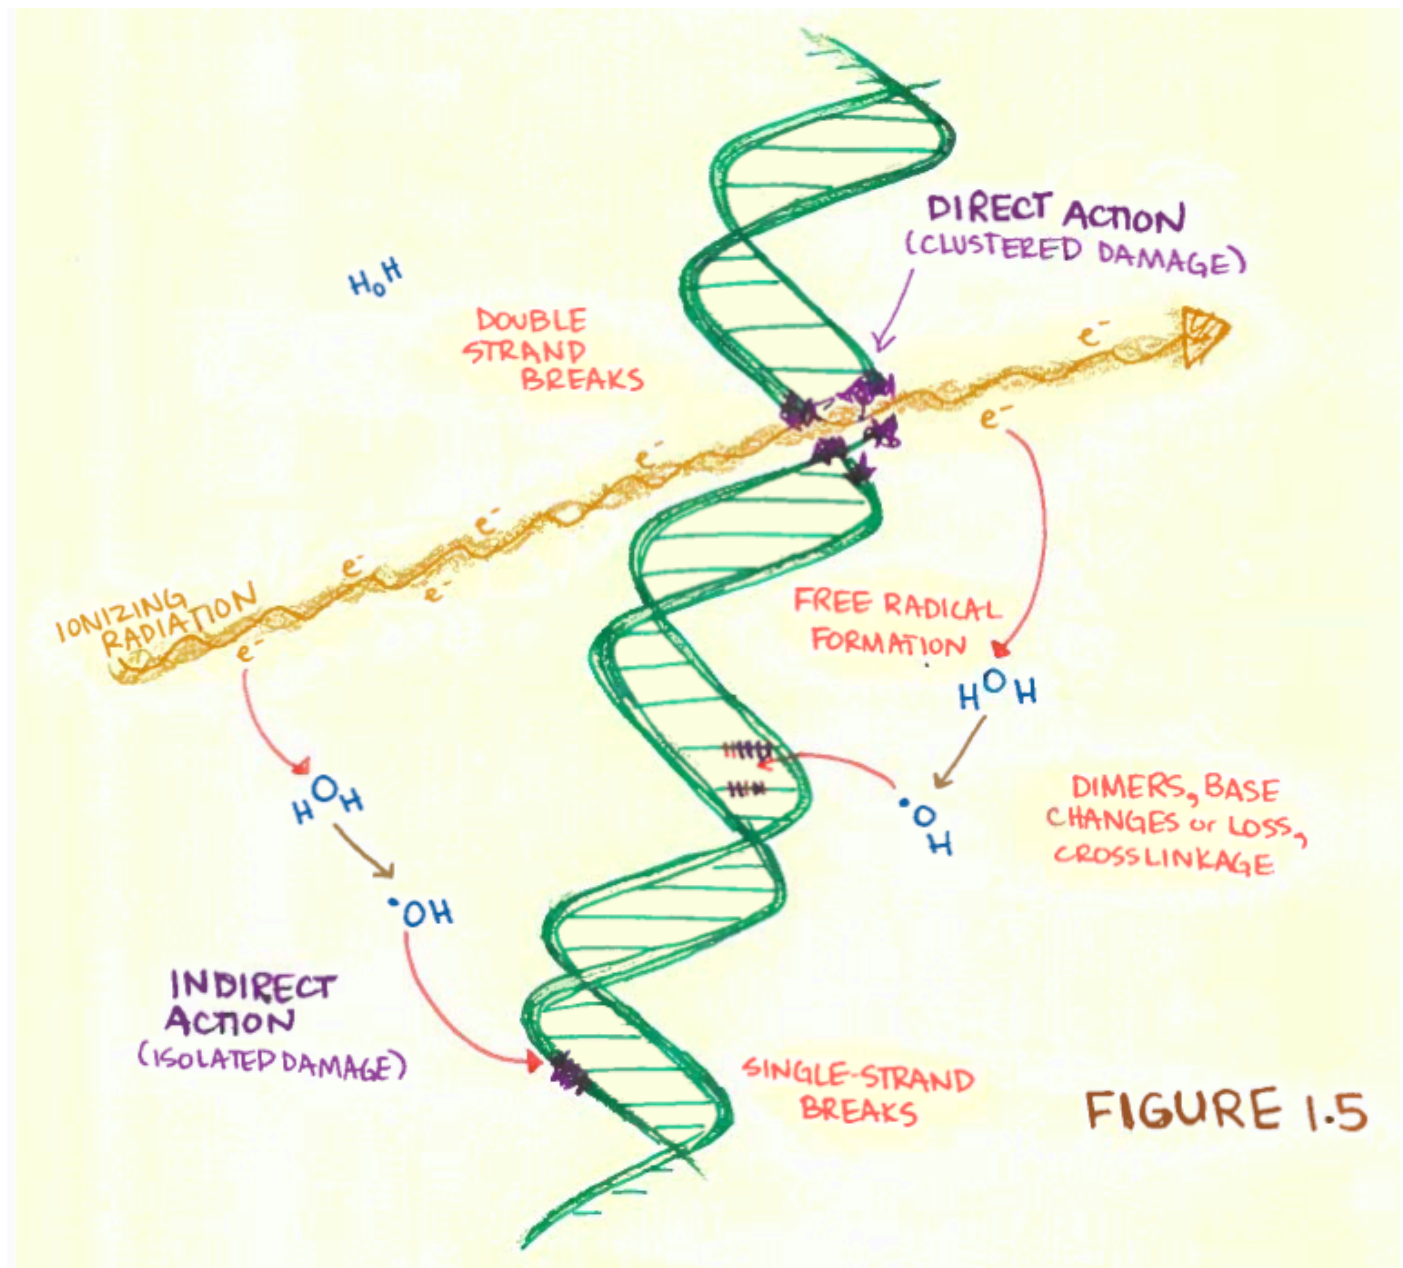 DIRECT ACTION
(CLUSTERED DAMAGE)
HOH
DOUBLE
STRAND
BREAKS
e-
e-
e-
e-
e-
e-
IONIZING
RADIATION
e-
FREE RADICAL
FORMATION
HOH
HOH
•OH
DIMERS, BASE
CHANGES or LOSS,
CROSSLINKAGE
•OH
INDIRECT
ACTION
(ISOLATED DAMAGE)
SINGLE-STRAND
BREAKS
FIGURE 1.5